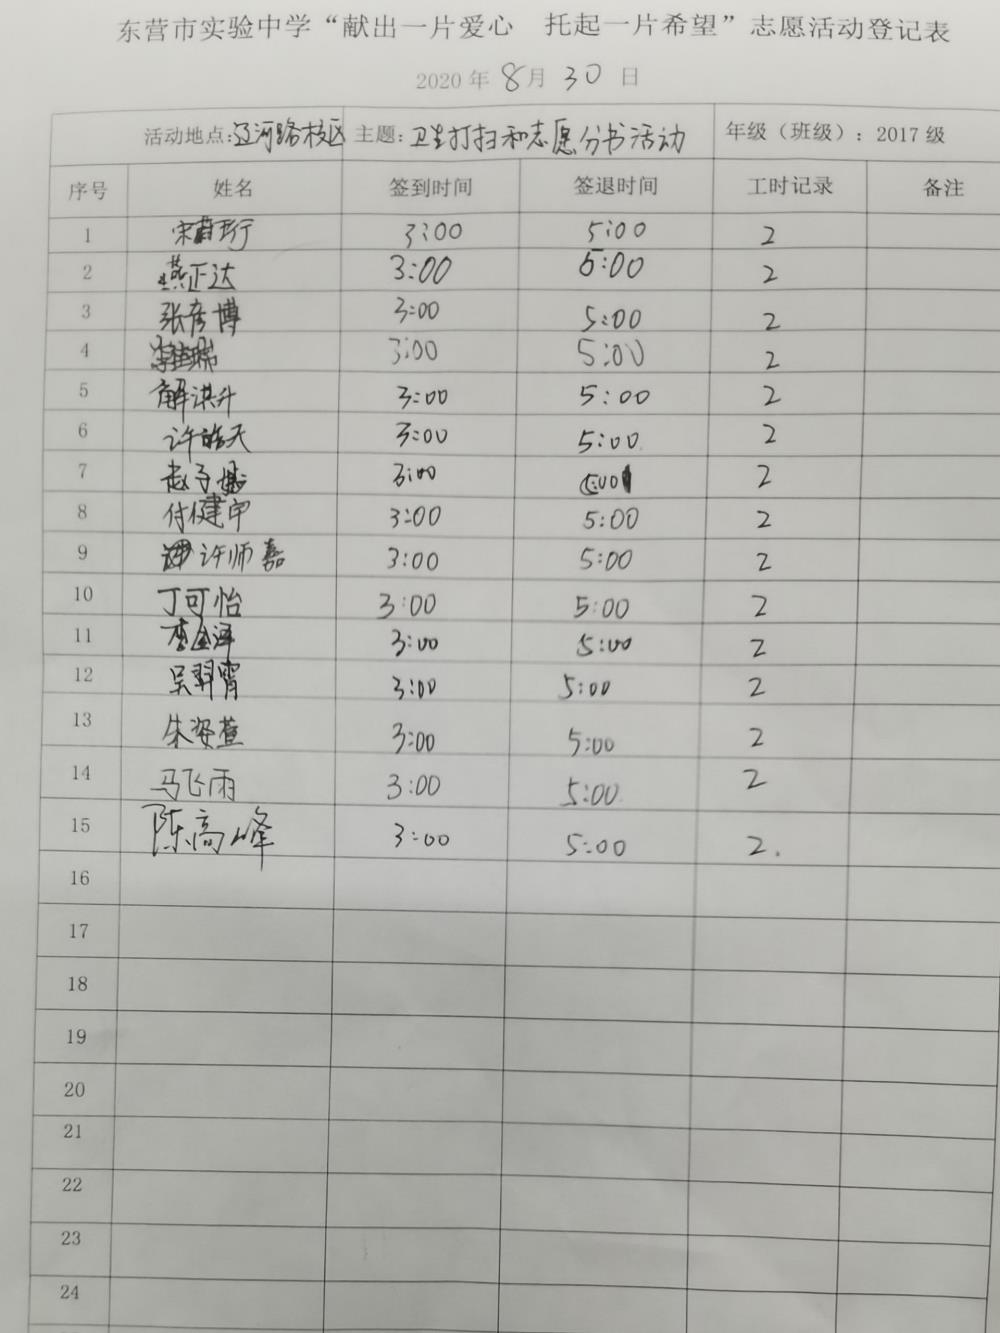 东营市实验中学“献出一片爱心　托起一片希望”志愿活动登记表
2020年 8月 30 日
活动地点:辽河路校区 主题: 卫生打扫和志愿分书活动 年级（班级）: 2017 级
序号 姓名 签到时间 签退时间 工时记录 备注
1 宋蔚珩 3:00 5:00 2
2 燕正达 3:00 5:00 2
3 张彦博 3:00 5:00 2
4 3:00 5:00 2
5 解淇升 3:00 5:00 2
6 许皓天 3:00 5:00 2
7 赵子 3:00 5:00 2
8 付健宇 3:00 5:00 2
9 许师嘉 3:00 5:00 2
10 丁可怡 3:00 5:00 2
11 李金泽 3:00 5:00 2
12 吴羿霄 3:00 5:00 2
13 朱姿萱 3:00 5:00 2
14 马飞雨 3:00 5:00 2
15 陈高峰 3:00 5:00 2.
16
17
18
19
20
21
22
23
24